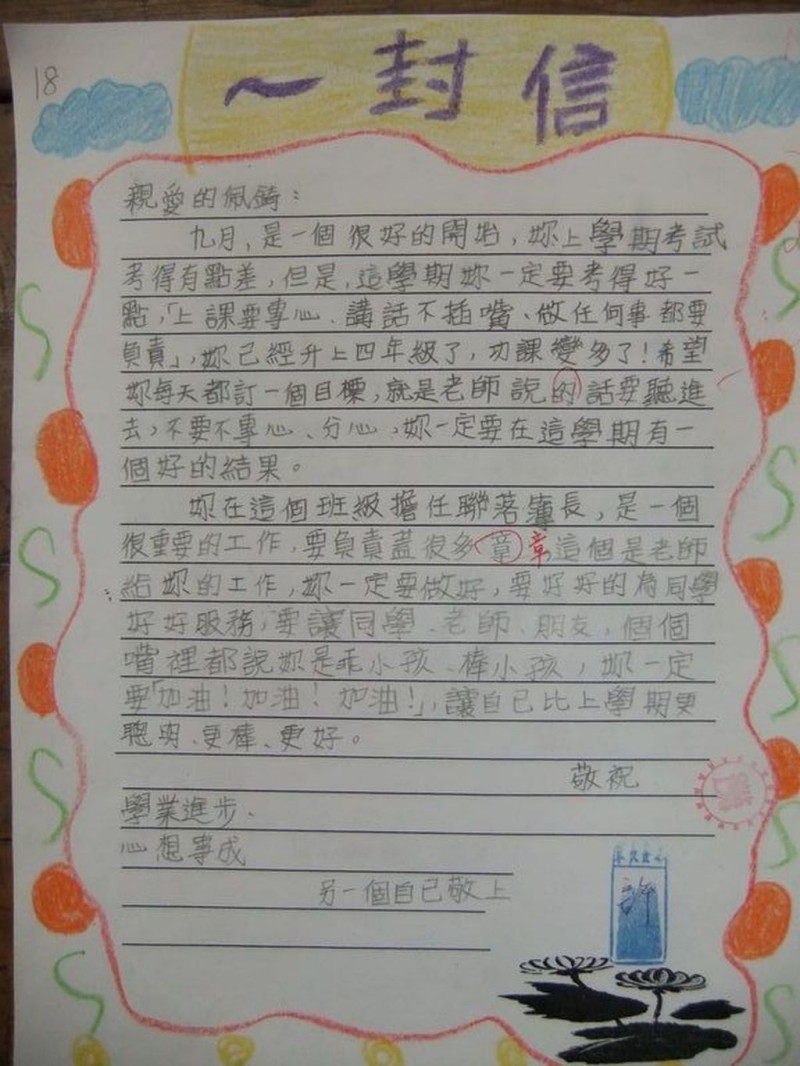 18
一封信
親愛的佩錡：
九月，是一個很好的開始，妳上學期考試
考得有點差，但是，這學期妳一定要考得好一
點，「上課要專心、講話不插嘴、做任何事都要
負責」，妳已經升上四年級了，功課變多了！希望
妳每天都訂一個目標，就是老師說的話要聽進
去，不要不專心、分心，妳一定要在這學期有一
個好的結果。
妳在這個班級擔任聯落簿長，是一個
很重要的工作，要負責蓋很多章章這個是老師
給妳的工作，妳一定要做好，要好好的為同學
好好服務，要讓同學、老師、朋友，個個
嘴裡都說妳是乖小孩、棒小孩，妳一定
要「加油！加油！加油！」，讓自己比上學期更
聰明、更棒、更好。
敬祝
學業進步、
心想事成
另一個自己敬上
許